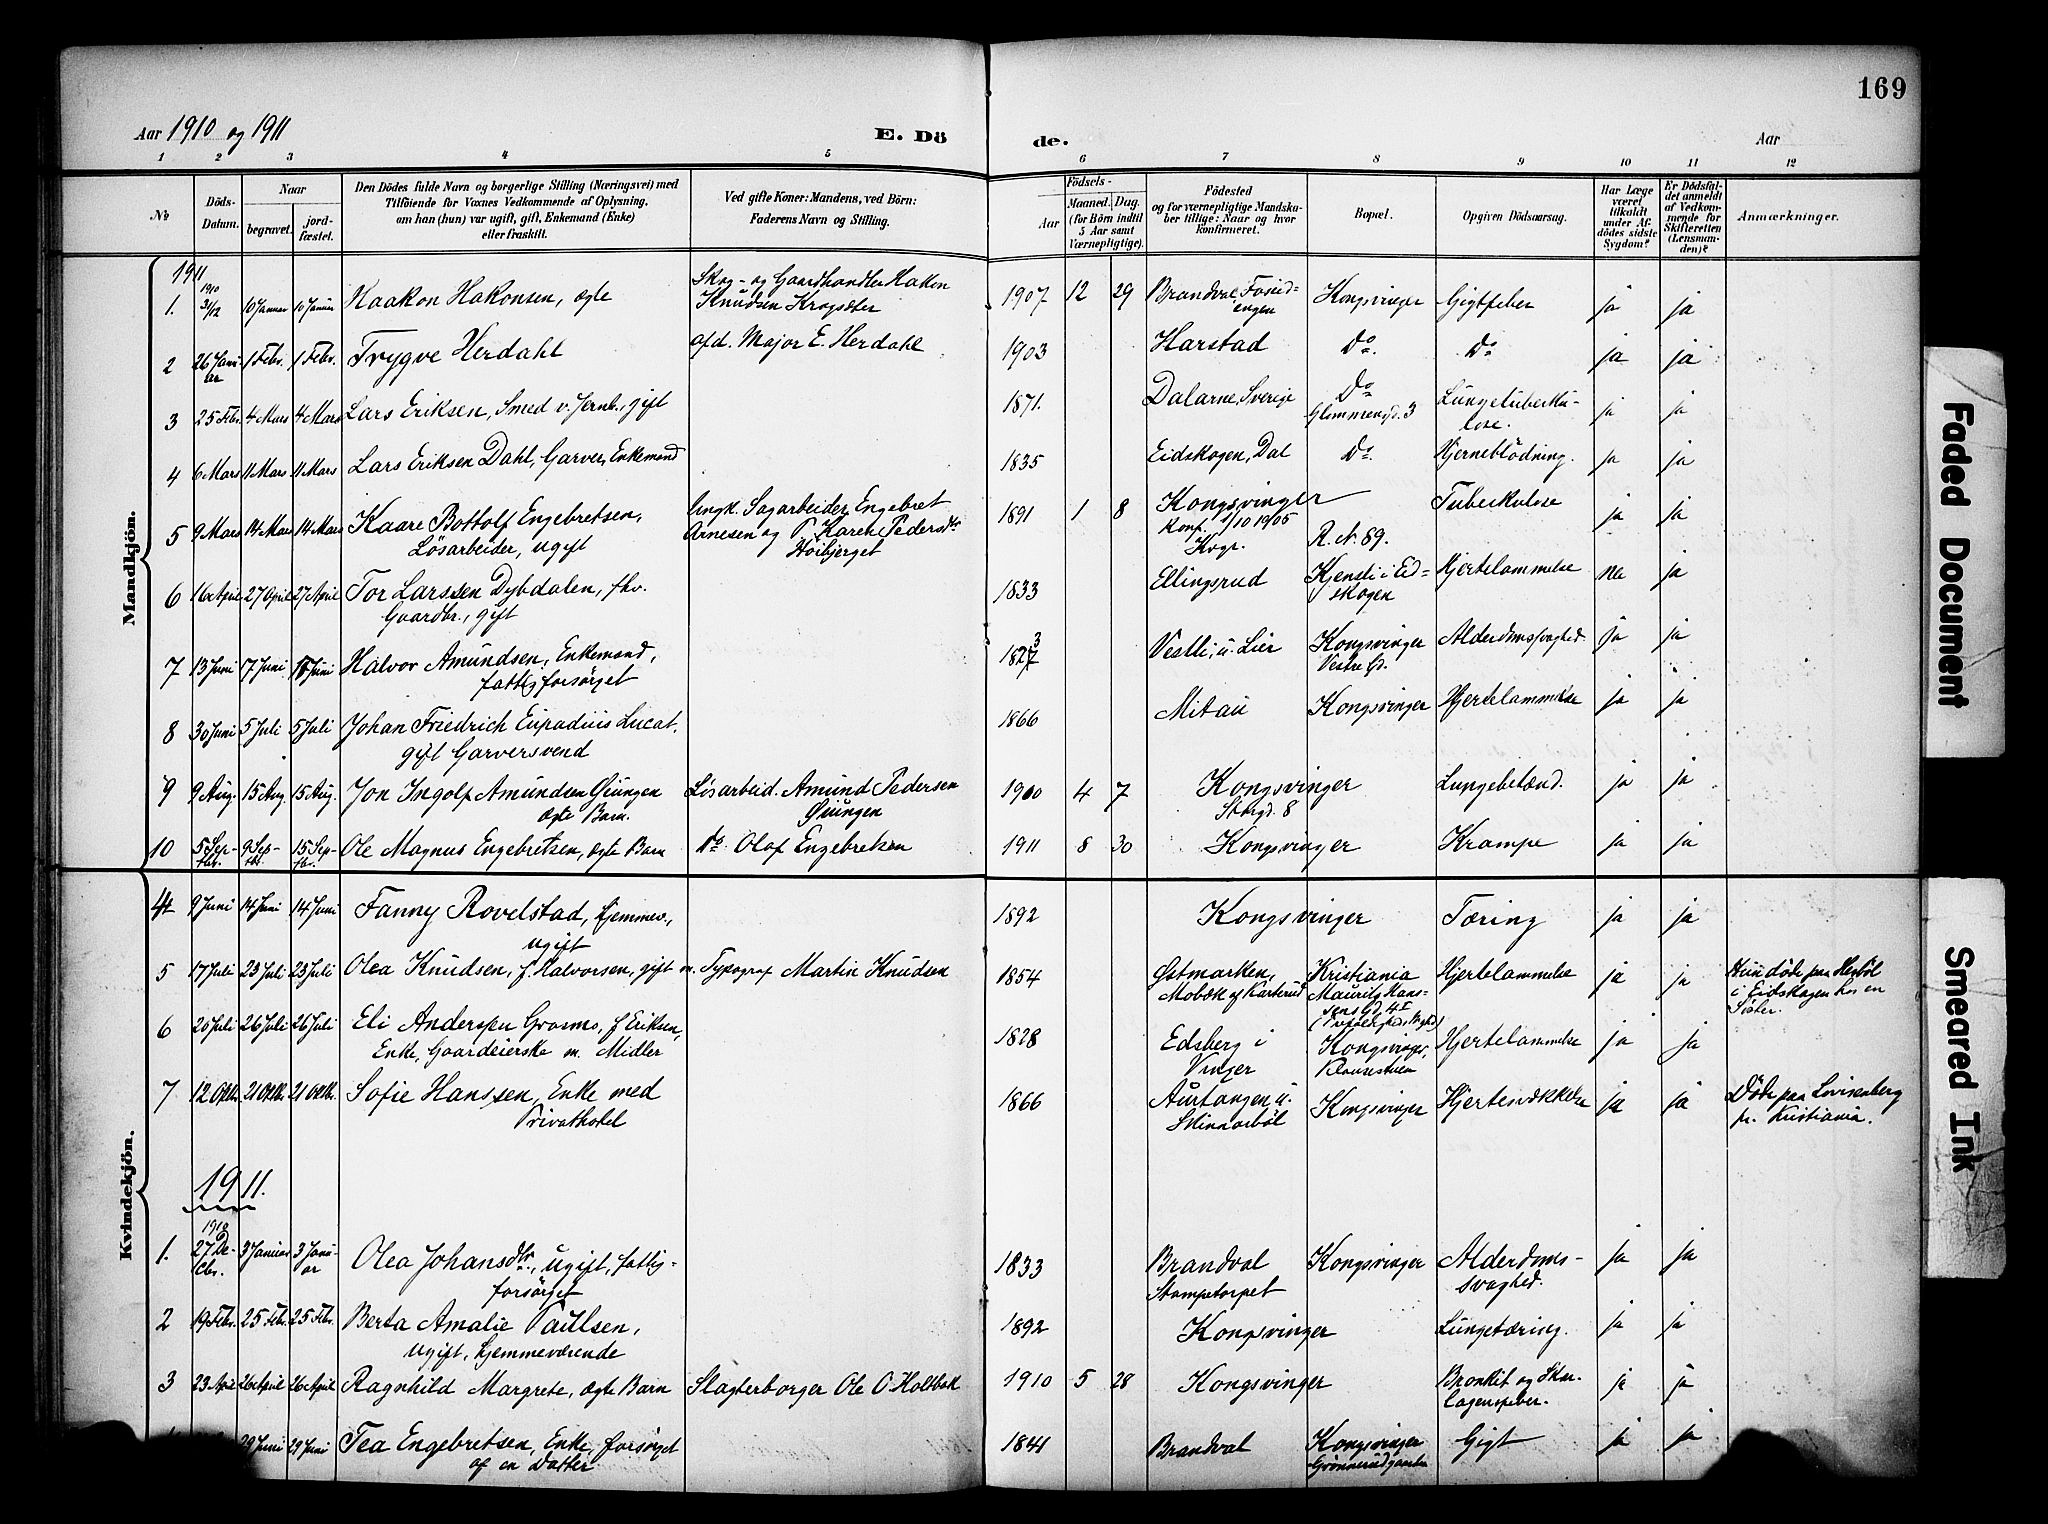 169
Aar 1910 og 1911
E. Dö
de.
Aar
1 2 3 4 5 6 7 8 9 10 11 12
No
Döds-
Datum.
Naar
begravet.
jord-
fæstet.
Den Dödes fulde Navn og borgerlige Stilling (Næringsvei) med
Tilföiende for Voxnes Vedkommende af Oplysning,
om han (hun) var ugift, gift, Enkemand (Enke)
eller fraskilt.
Ved gifte Koner: Mandens, ved Börn:
Faderens Navn og Stilling.
Födsels-
Aar
Maaned.
Dag.
(for Börn indtil
5 Aar samt
Værnepligtige).
Födested
og for værnepligtige Mandska-
ber tillige: Naar og hvor
konfirmeret.
Bopæl.
Opgiven Dödsaarsag.
Har Læge
været
tilkaldt
under Af-
dödes sidste
Sygdom?
Er Dödsfal-
det anmeldt
af Vedkom-
mende for
Skifteretten
(Lensman-
den)?
Anmærkninger.
Mandkjön.
1911
1. 1910 31/12 10 Januar 10 Januar Haakon Hakonsen, ægte Skog- og Gaardhandler Hakon
Knudsen Krogsæter 1907 12 29 Brandval, Kongsvinger Gigtfeber ja ja
2 26 Janu-
ar 1 Febr. 1 Febr. Trygve Herdahl afd. Major E. Herdahl 1903 Harstad Do. Do ja ja
3 25 Febr. 4 Mars 4 Mars Lars Eriksen, Smed v. Jernb., gift 1871. Dalarne, Sverige Do
Glommengd. 3 Lungetuberku-
lose. ja ja
4 6 Mars 11 Mars 11 Mars Lars Eriksen Dahl, Garver, Enkemand 1835 Eidskogen, Dal Do. Hjerneblödning. ja ja
5 9 Mars 14 Mars 14 Mars Kaare Bottolf Engebretsen,
Løsarbeider, ugift Ungk. Sagarbeider Engebret
Arnesen og P. Karen Pedersdtr
Höibjerget 1891 1 8 Kongsvinger
Konf. 1/10 1905
Kvgr. R. N. 89. Tuberkulose ja ja
6 16 April 27 April 27 April Tor Larssen Dybdalen, fhv.
Gaardbr., gift 1833 Ellingsrud Kjensli i Eid-
skogen Hjertelammelse nei ja
7 13 Juni 17 Juni 17 Juni Halvor Amundsen, Enkemand,
fattigforsørget 1827 3 Vestli, u. Lier Kongsvinger
Vestre Gd. Alderdomssvaghed. ja ja
8 30 Juni 5 Juli 5 Juli Johan Friedrich Lucat,
gift Garversvend 1866 Mitau Kongsvinger Hjertelammelse ja ja
9 9 Aug. 15 Aug. 15 Aug. Jon Ingolf Amundsen Øiungen
ægte Barn. Løsarbeid. Amund Pedersen
Øiungen 1900 4 7 Kongsvinger
Storgd. 8 Lungebetænd. ja ja
10 5 Sep-
tbr. 9 Sep-
tbr. 15 Sep-
tbr. Ole Magnus Engebretsen, ægte Barn do Olaf Engebretsen 1911 8 30 Kongsvinger Krampe ja ja
Kvindekjön.
4 9 Juni 14 Juni 14 Juni Fanny Rovelstad, hjemmev.,
ugift 1892 Kongsvinger Tæring ja ja
5 17 Juli 23 Juli 23 Juli Olea Knudsen, f. Halvorsen, gift m. Typograf Martin Knudsen 1854 Østmarken,
Mobæk af Karterud Kristiania
Mauritz Han-
sens Gd. 4 I Hjertelammelse ja ja Hun døde paa Hesböl
i Eidskogen hos en
Söster.
6 20 Juli 26 Juli 26 Juli Eli Andersen Grasmo, f. Eriksen,
Enke, Gaardeierske m. Midler 1828 Edsberg i
Vinger Kongsvinger, Hjertelammelse ja ja
7 12 Oktbr. 21 Oktbr. 21 Oktbr. Sofie Hanssen, Enke med
Privathotel 1866 Aurtangen u.
Skinnarböl Kongsvinger Hjertesvækkelse ja ja Döde paa Lovisenberg
pr. Kristiania.
1911.
1. 1910
27 De-
cbr. 3 Januar 3 Janu-
ar Olea Johansdtr., ugift, fattig-
forsørget 1833 Brandval
Stampetorpet Kongsvinger Alderdoms-
svaghed. ja ja
2 19 Febr. 25 Febr. 25 Febr. Berta Amalie Paulsen,
ugift, hjemmeværende 1892 Kongsvinger Lungetæring. ja ja
3 23 April 26 April 26 April Ragnhild Margrete, ægte Barn Slagterborger Ole O. Holtbak 1910 5 28 Kongsvinger Bronkit og Skar-
lagensfeber. ja ja
29 Juni 29 Juni Tea Engebretsen, Enke, forsørget
af en Datter 1841 Brandval Kongsvinger
Grønnerudgaarden Gigt ja ja
Faded Document
Smeared Ink